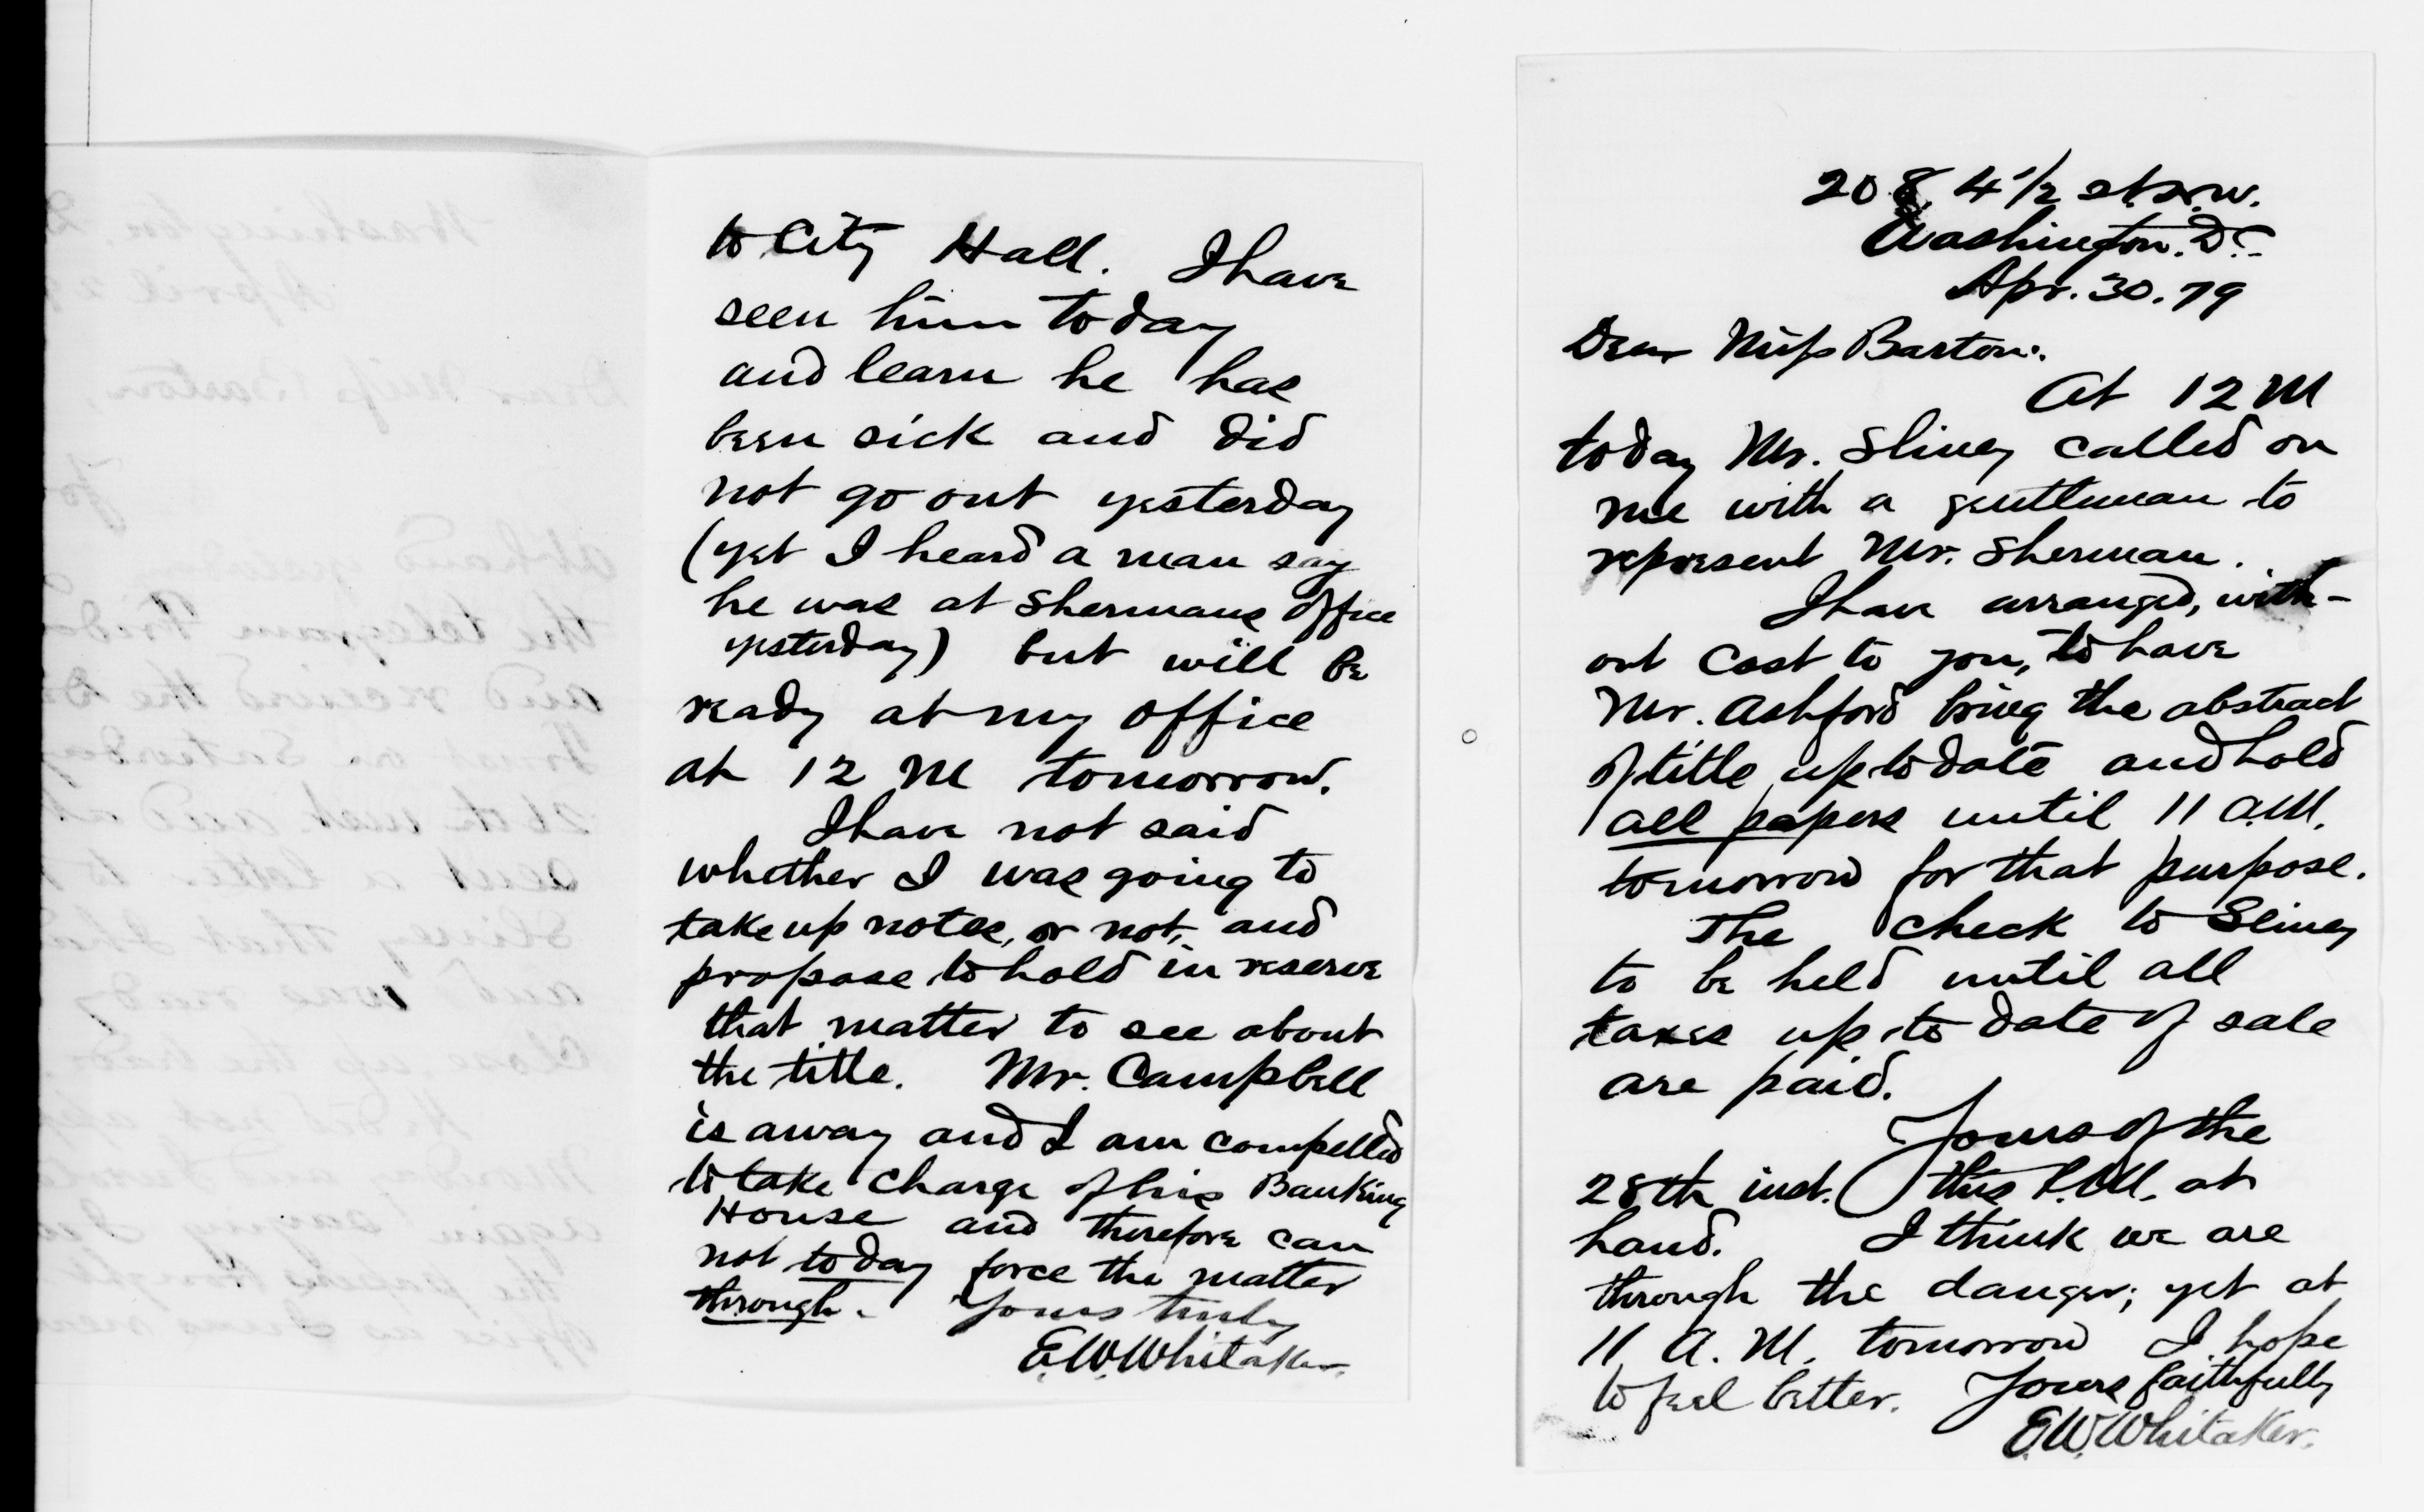 to City Hall. I have
seen him today
and learn he has
been sick and did
not go out yesterday
(yet I heard a man say
he was at Shermans office
yesterday) but will be
ready at my office
at 12 M tomorrow.
I have not said
whether I was going to
take up notes, or not, and
propose to hold in reserve
that matter to see about
the title. Mr. Campbell
is away and I am compelled
to take charge of his Banking
House and therefore can
not today force the matter
through. Yours truly
E.W. Whitaker.
208 4 1/2 st. N.W.
Washington. D.C.
Apr. 30. 79
Dear Miss Barton:
At 12 M
today Mr. Sliney called on
me with a gentleman to
represent Mr. Sherman.
I have arranged, with-
out cost to you, to have
Mr. Ashford bring the abstract
of title up to date and hold
all papers until 11 A.M.
tomorrow for that purpose.
The check to Sliney
to be held until all
taxes up to date of sale
are paid.
Yours of the
28th inst. this P.M. at
hand. I think we are
through the danger; yet at
11 A.M. tomorrow I hope
to feel better. Yours faithfully
E.W. Whitaker.